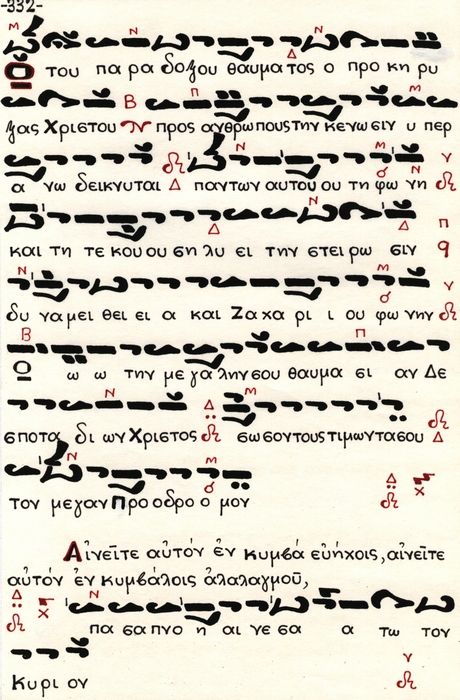 -332-
Ὦ του πα ρα δο ξου θαυμα τος ο προ κη ρυ
ξας Χριστου προς ανθρωπους την κενωσιν υ περ
α νω δεικνυται παντων αυτου ου τη φω νη
και τη τε κου ου ση λυ ει την στει ρω σιν
δυ ναμει θει ει α και Ζα χα ρι ι ου φω νην
ο ω ω την με γα λην σου θαυμα σι αν Δε
σποτα δι ων Χριστος σωσον τους τιμωντας ου
τον μεγαν Προ οδρο ο μον
Αἰνεῖτε αὐτόν ἐν κυμβά εὐήχοις, αἰνεῖτε
αὐτόν ἐν κυμβάλοις ἀλαλαγμοῦ,
πα σα πνο η αι νε σα α τω τον
Κυρι ον